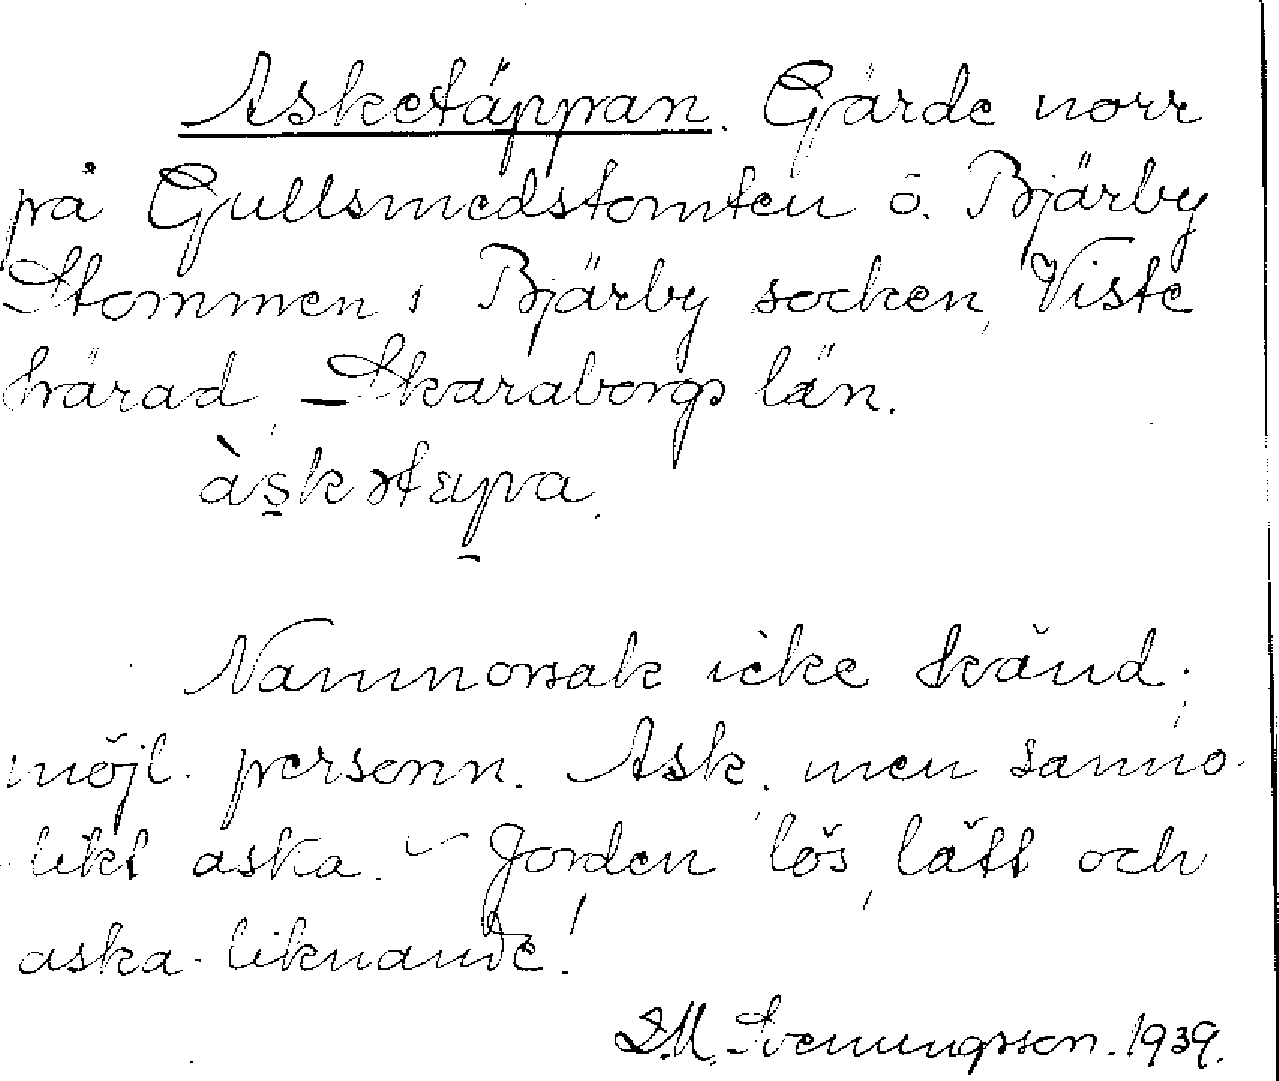 Asketäppan. Gärde norr
på Gullsmedstomten ö. Bjärby
Stommen i Bjärby socken, Viste
härad, Skaraborgs län.
àskətäpa.
Namnorsak icke känd;
möjl. personn. Ask, men sanno-
likt aska. Jorden lös, lätt och
aska-liknande!
D.M. Svenungsson. 1939.